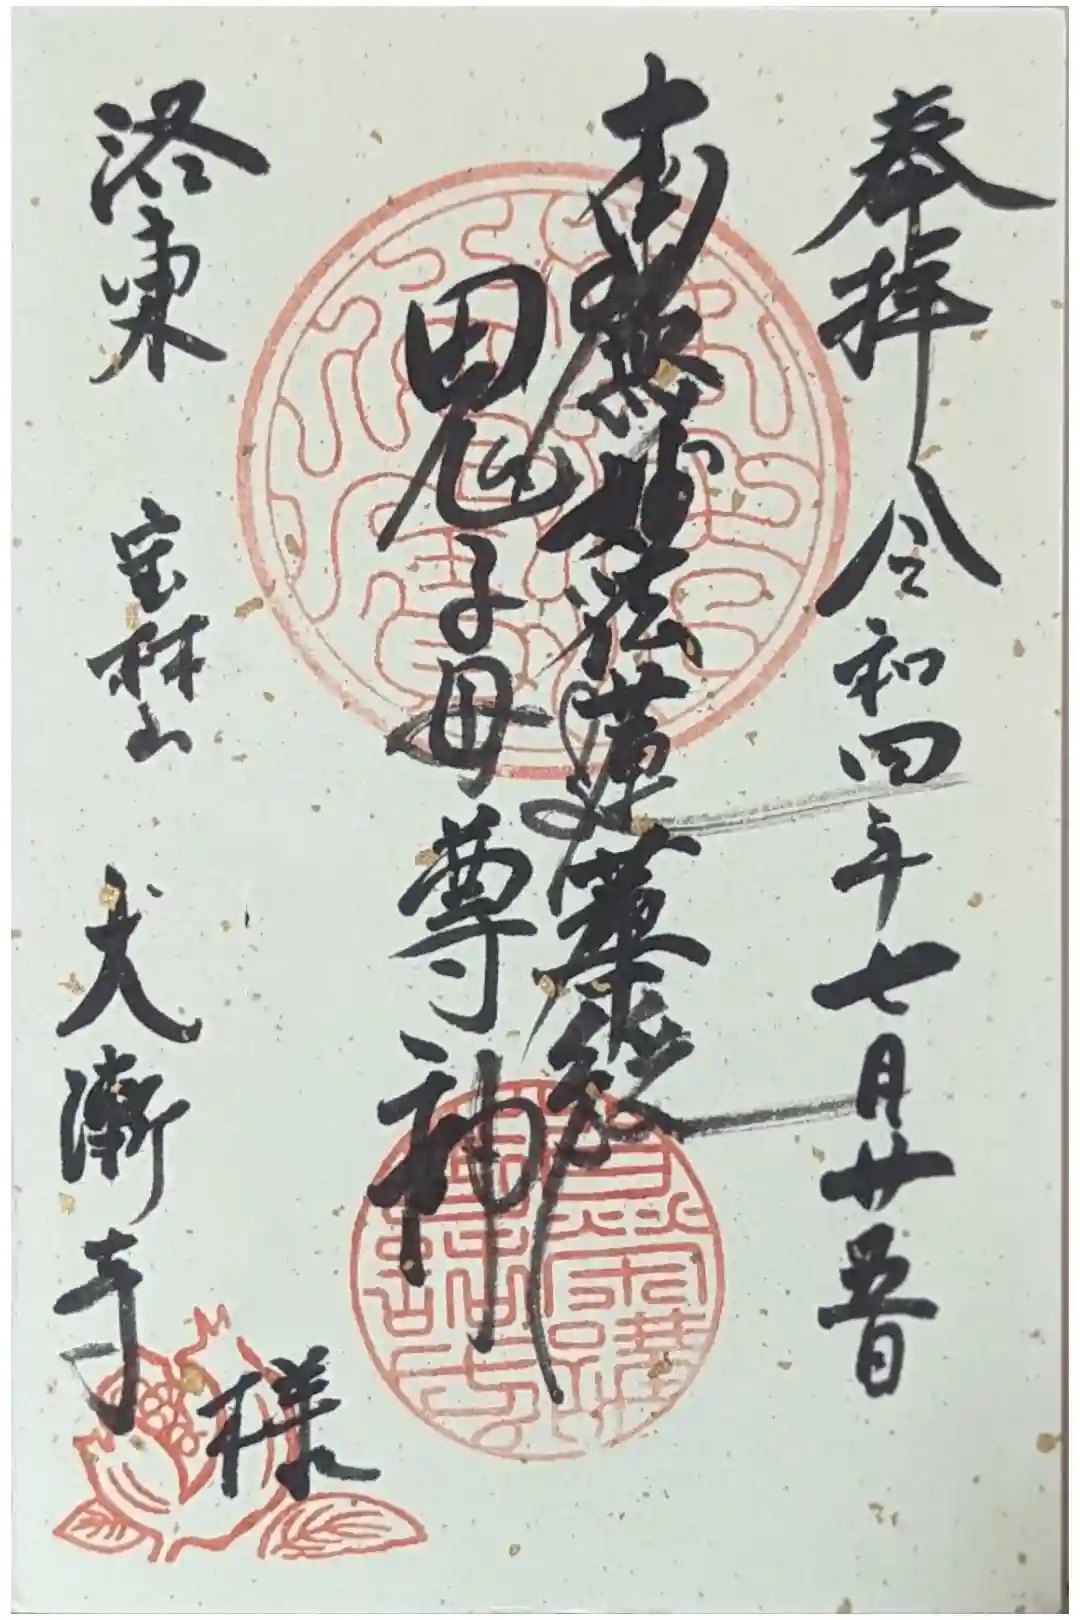 奉拝 令和四年七月廿五日
南無妙法蓮華経
鬼子母尊神
洛東 宝林山 大漸寺
様